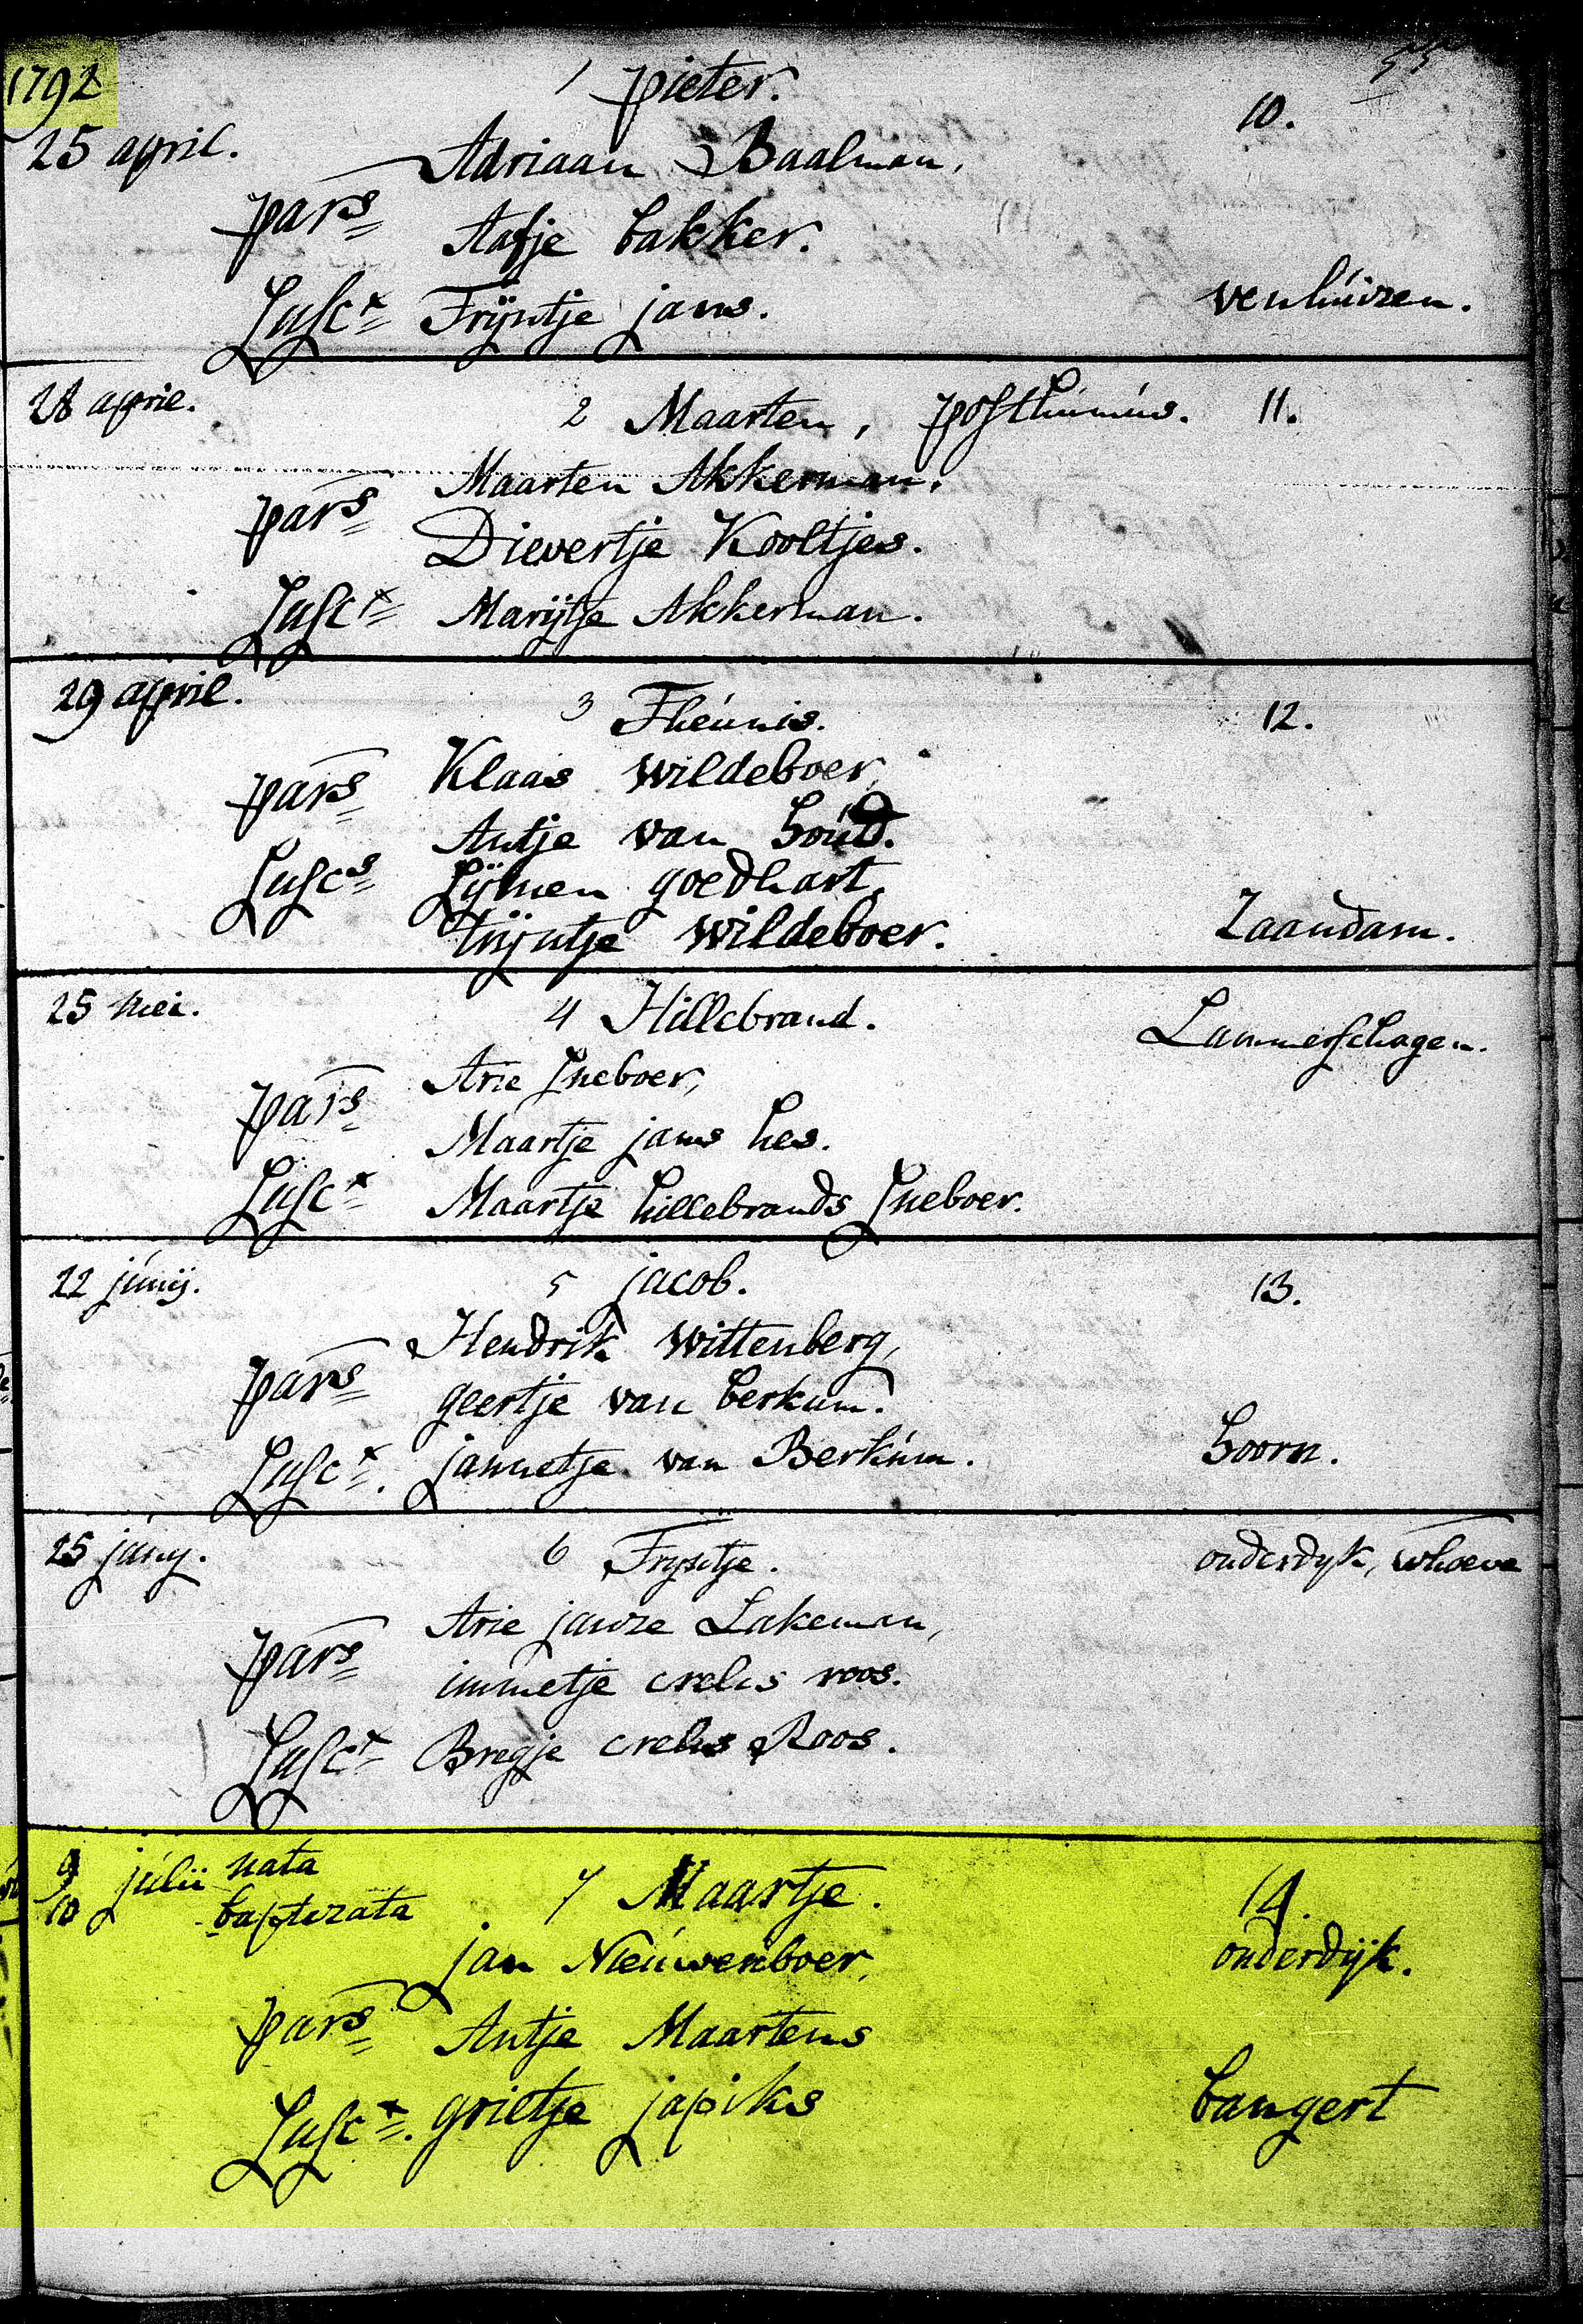 1792
55
1 pieter.
10.
25 april.
Adriaan Baalman,
pars
Aafje bakker.
Susc. Trijntje jans. venhuizen.
28 april. 2 Maarten, posthumus. 11.
Maarten Akkerman,
pars
Dievertje Kooltjes.
Susc. Marijtje Akkerman.
29 april. 3 Theunis. 12.
Klaas wildeboer,
pars
Antje van houd.
Suscs Sijmen goedhart,
trijntje wildeboer. Zaandam.
25 mei. 4 Hillebrand. Lammerschagen.
Arie Sneboer,
pars
Maartje jans hes.
Susc. Maartje hillebrands Sneboer.
22 junij. 5 jacob. 13.
Hendrik wittenberg,
pars
geertje van berkum.
Susc. jannetje van Berkum. hoorn.
25 juny. 6 Tryntje. onderdyk, whoeve
Arie janze Lakeman,
pars
immetje crelis roos.
Susc. Bregje crelis Roos.
9 julii nata
10 baptizata
7 Maartje. 14.
jan Nieuwenboer, onderdijk.
pars Antje Maartens
Susc. grietje japiks bangert